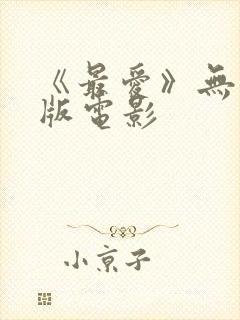 《最爱》無
版電影
小京子